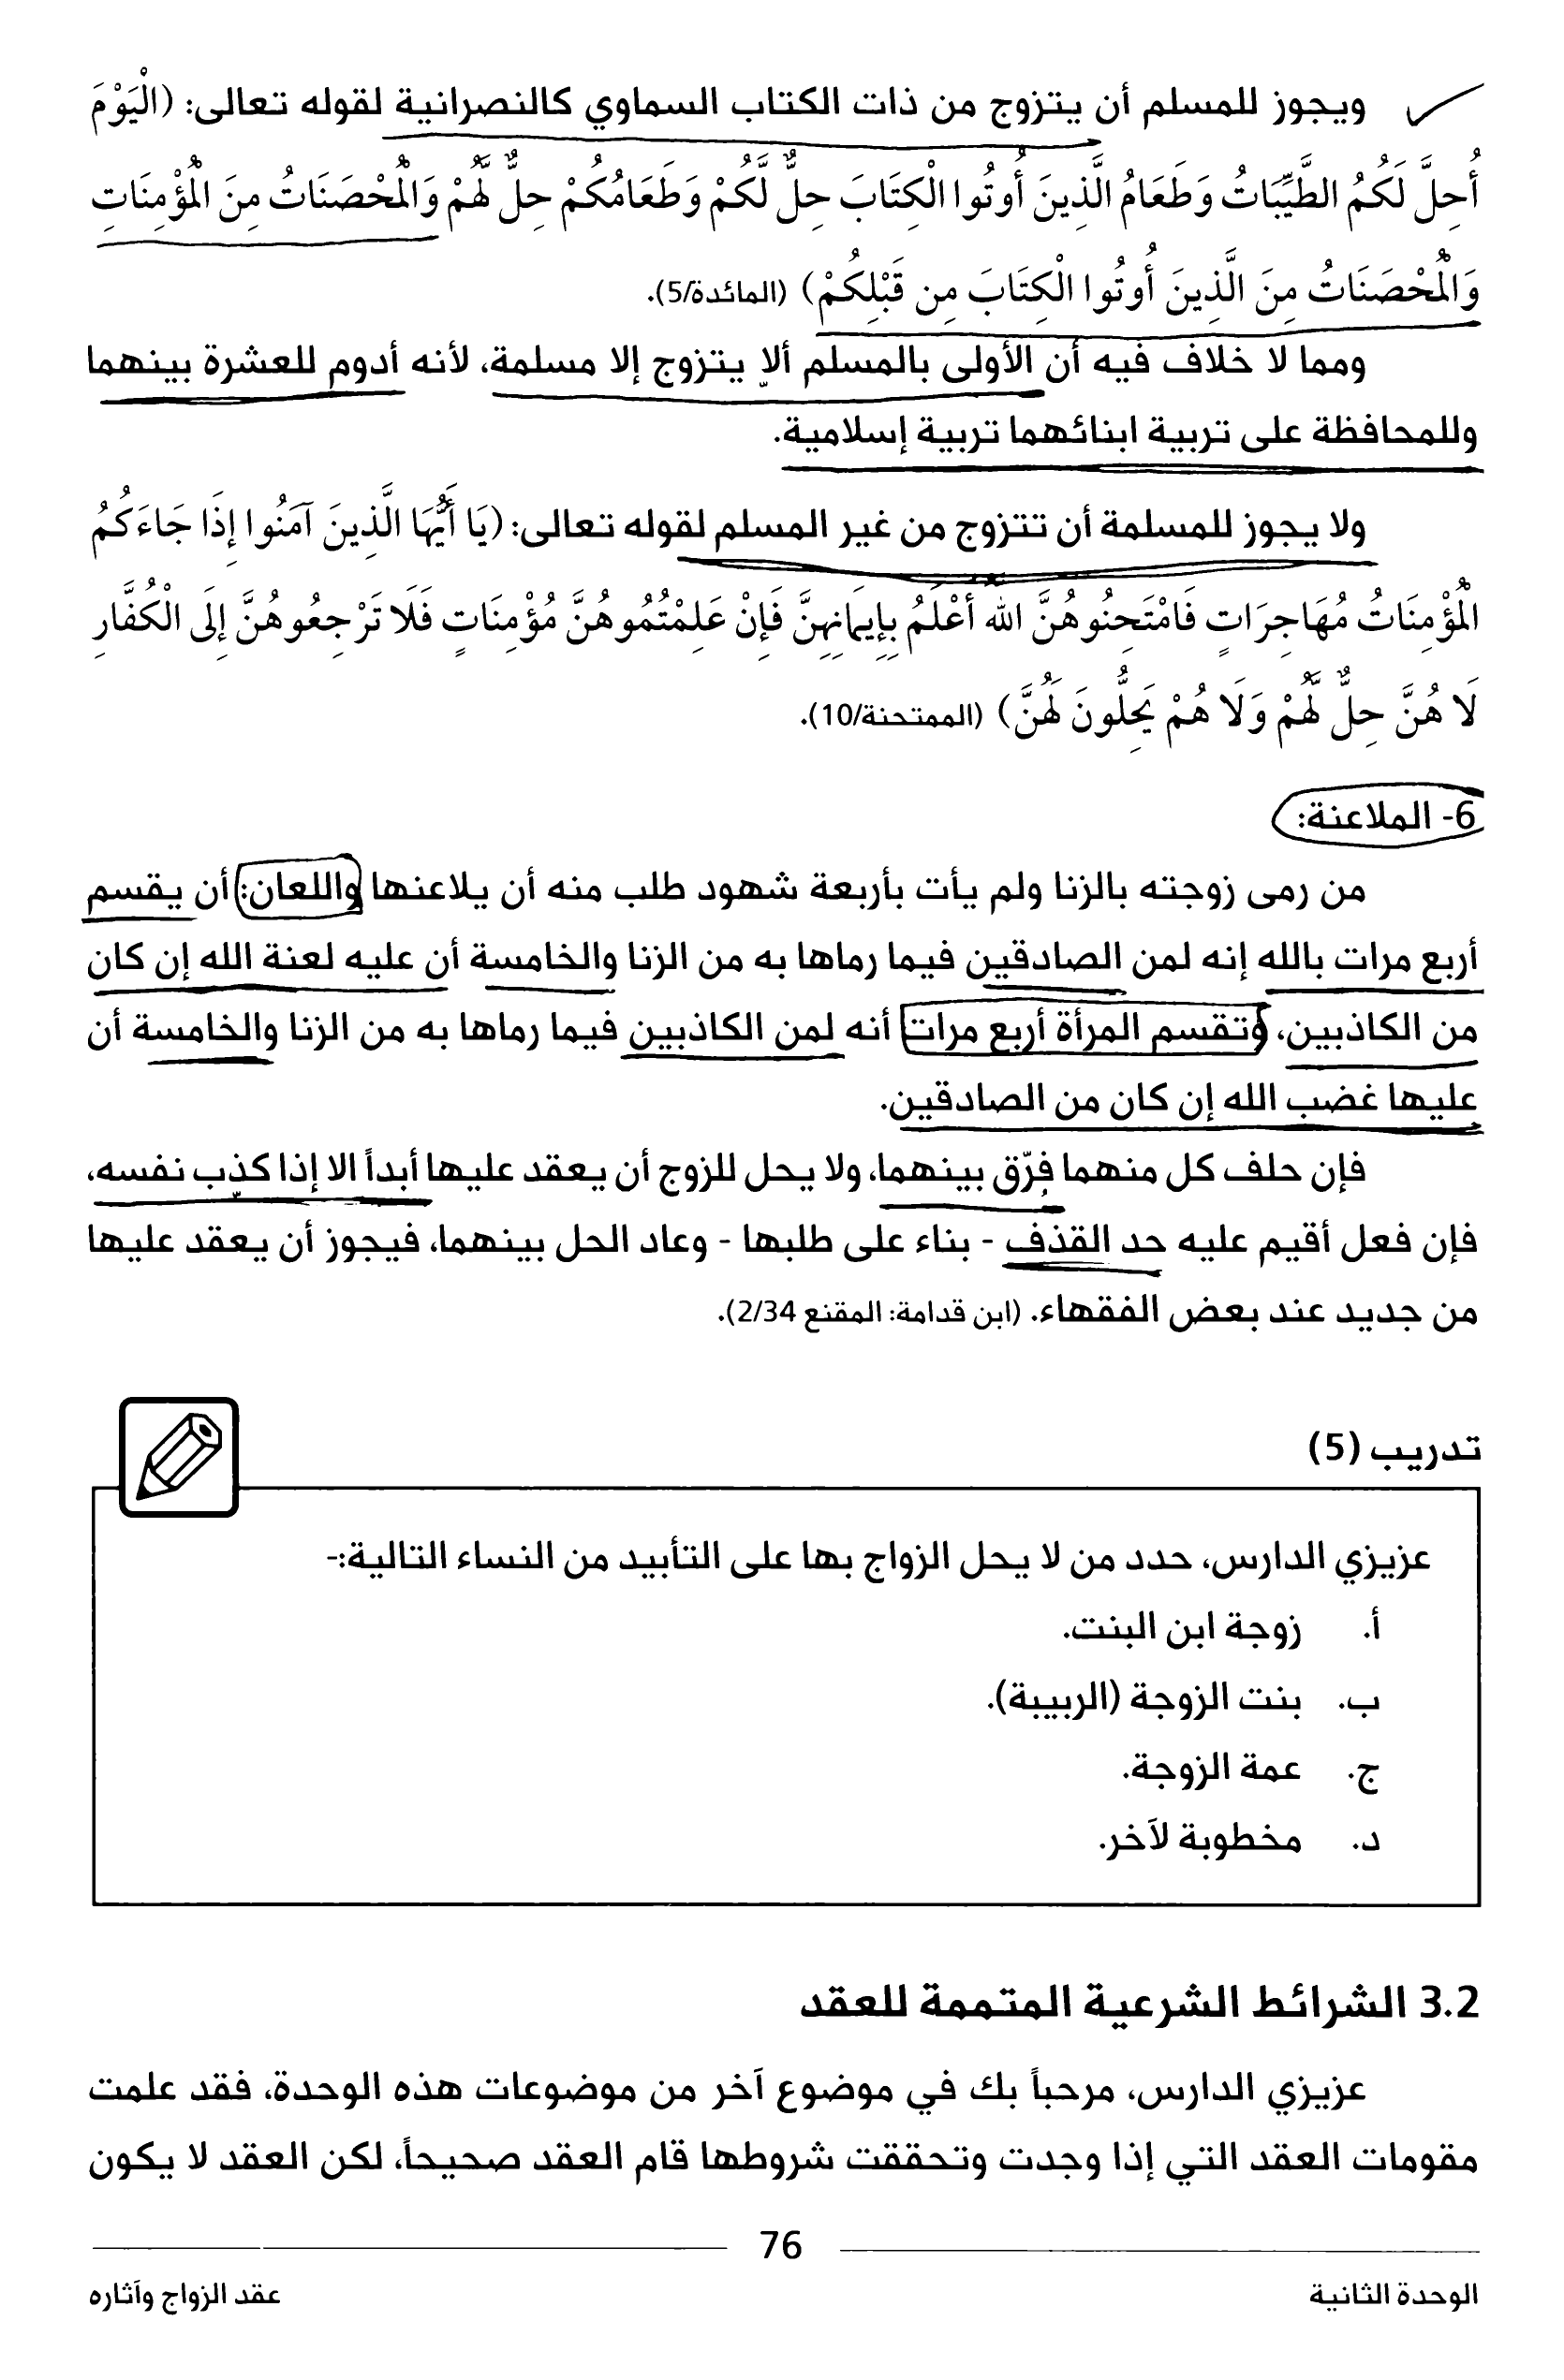 ويجوز للمسلم أن يتزوج من ذات الكتاب السماوي كالنصرانية لقوله تعالى: (الْيَوْمَ
أُحِلَّ لَكُمُ الطَّيِّبَاتُ وَطَعَامُ الَّذِينَ أُوتُوا الْكِتَابَ حِلٌّ لَّكُمْ وَطَعَامُكُمْ حِلٌّ لَّهُمْ وَالْمُحْصَنَاتُ مِنَ الْمُؤْمِنَاتِ
وَالْمُحْصَنَاتُ مِنَ الَّذِينَ أُوتُوا الْكِتَابَ مِن قَبْلِكُمْ) (المائدة/5).
ومما لا خلاف فيه أن الأولى بالمسلم ألا يتزوج إلا مسلمة، لأنه أدوم للعشرة بينهما
وللمحافظة على تربية ابنائهما تربية إسلامية.
ولا يجوز للمسلمة أن تتزوج من غير المسلم لقوله تعالى: (يَا أَيُّهَا الَّذِينَ آمَنُوا إِذَا جَاءَكُمُ
الْمُؤْمِنَاتُ مُهَاجِرَاتٍ فَامْتَحِنُوهُنَّ اللهُ أَعْلَمُ بِإِيمَانِهِنَّ فَإِنْ عَلِمْتُمُوهُنَّ مُؤْمِنَاتٍ فَلَا تَرْجِعُوهُنَّ إِلَى الْكُفَّارِ
لَا هُنَّ حِلٌّ لَّهُمْ وَلَا هُمْ يَحِلُّونَ لَهُنَّ) (الممتحنة/10).
6- الملاعنة:
من رمى زوجته بالزنا ولم يأت بأربعة شهود طلب منه أن يلاعنها واللعان: أن يقسم
أربع مرات بالله إنه لمن الصادقين فيما رماها به من الزنا والخامسة أن عليه لعنة الله إن كان
من الكاذبين، وتقسم المرأة أربع مرات أنه لمن الكاذبين فيما رماها به من الزنا والخامسة أن
عليها غضب الله إن كان من الصادقين.
فإن حلف كل منهما فرّق بينهما، ولا يحل للزوج أن يعقد عليها أبداً الا إذا كذب نفسه،
فإن فعل أقيم عليه حد القذف - بناء على طلبها - وعاد الحل بينهما، فيجوز أن يعقد عليها
من جديد عند بعض الفقهاء. (ابن قدامة: المقنع 2/34).
تدريب (5)
عزيزي الدارس، حدد من لا يحل الزواج بها على التأبيد من النساء التالية:-
أ. زوجة ابن البنت.
ب. بنت الزوجة (الربيبة).
ج. عمة الزوجة.
د. مخطوبة لآخر.
3.2 الشرائط الشرعية المتممة للعقد
عزيزي الدارس، مرحباً بك في موضوع آخر من موضوعات هذه الوحدة، فقد علمت
مقومات العقد التي إذا وجدت وتحققت شروطها قام العقد صحيحاً، لكن العقد لا يكون
76
الوحدة الثانية
عقد الزواج وآثاره